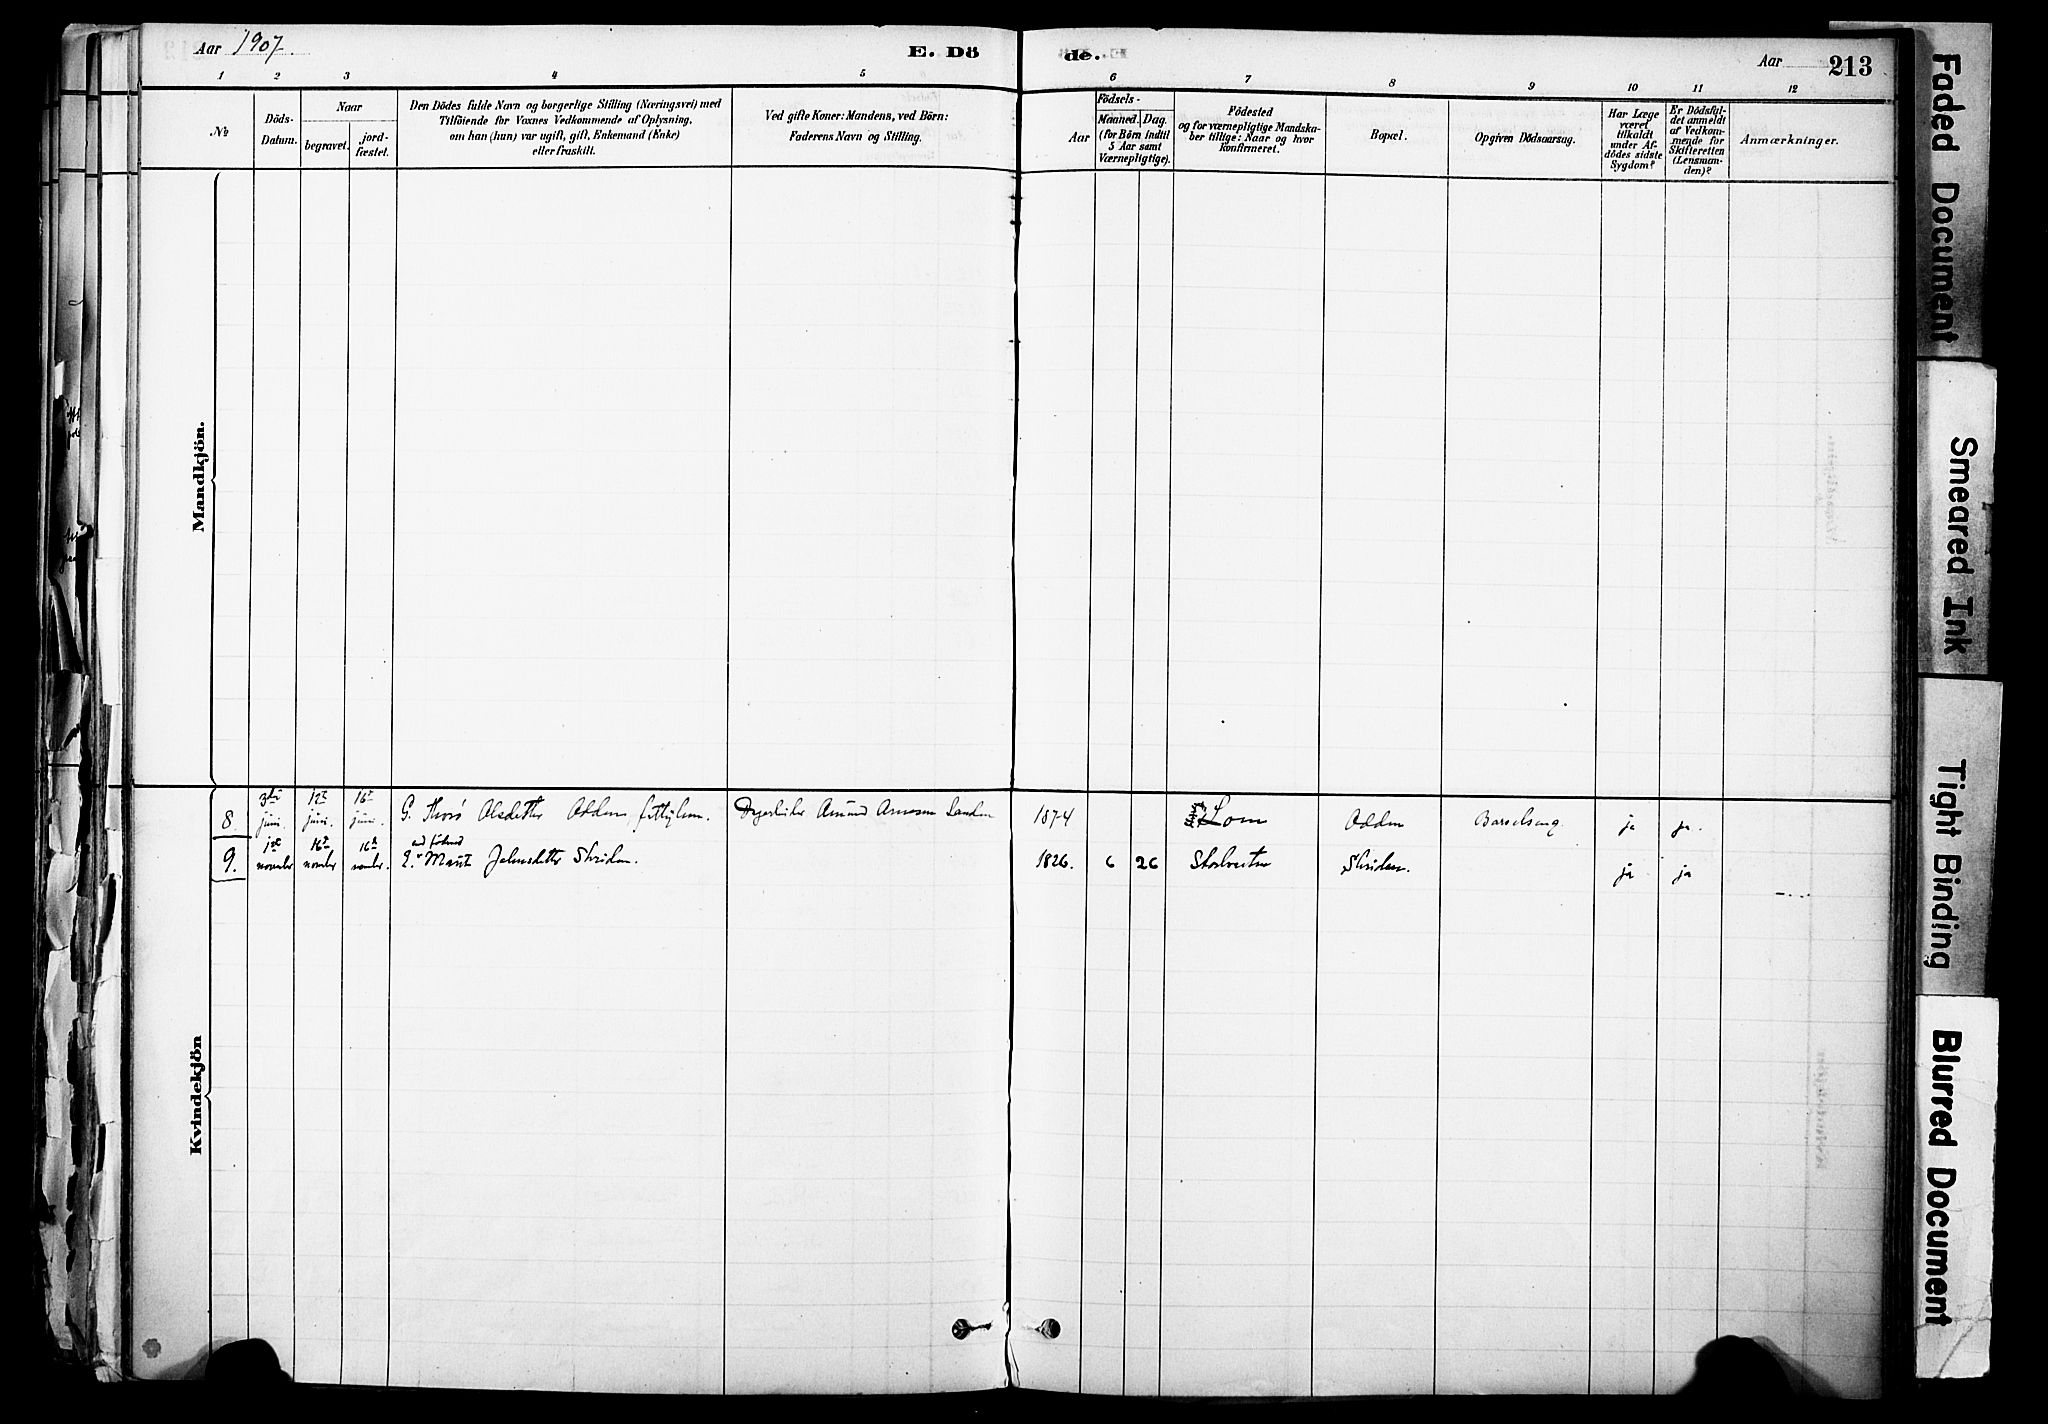 Aar 1907.
E. Dö
de.
Aar
213
1 2 3 4 5 6 7 8 9 10 11 12
№
Döds-
Datum.
Naar
begravet.
jord-
fæstet.
Den Dödes fulde Navn og borgerlige Stilling (Næringsvei) med
Tilföiende for Voxnes Vedkommende af Oplysning,
om han (hun) var ugift, gift, Enkemand (Enke)
eller fraskilt.
Ved gifte Koner: Mandens, ved Börn:
Faderens Navn og Stilling.
Födsels-
Aar
Maaned.
Dag.
(for Börn indtil
5 Aar samt
Værnepligtige).
Födested
og for værnepligtige Mandska-
ber tillige: Naar og hvor
Konfirmeret.
Bopæl.
Opgiven Dödsaarsag.
Har Læge
været
tilkaldt
under Af-
dödes sidste
Sygdom?
Er Dödsfal-
det anmeldt
af Vedkom-
mende for
Skifteretten
(Lensman-
den)?
Anmærkninger.
Mandkjön.
8 3die juni. 12te juni. 16te juni. G. Thorø Olsdatter Odden Amund Arnesen 1874 Lom Odden Barselseng. ja ja.
9. novmbr 16te novmbr 16te novmbr. Marit 1826. 6 26 ja ja
Kvindekjön
Faded Document
Smeared Ink
Tight Binding
Blurred Document